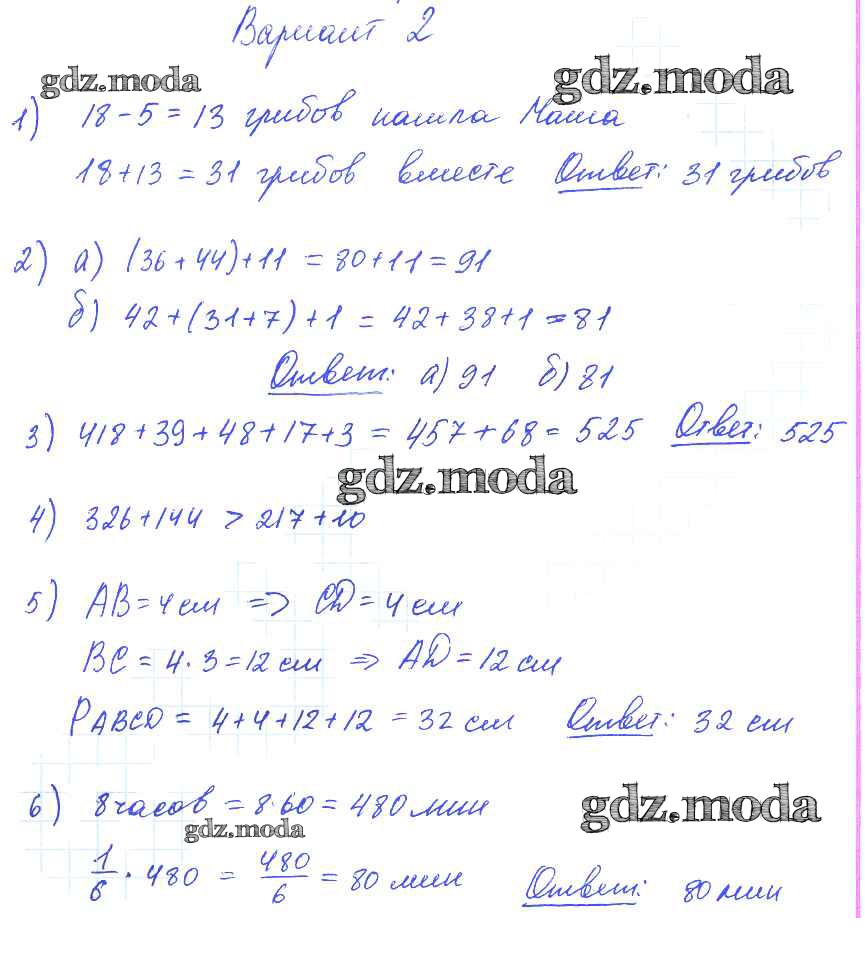 Вариант 2
gdz.moda gdz.moda
1) 18 - 5 = 13 грибов нашла Маша
18 + 13 = 31 грибов вместе Ответ: 31 грибов
2) а) (36 + 44) + 11 = 80 + 11 = 91
б) 42 + (31 + 7) + 1 = 42 + 38 + 1 = 81
Ответ: а) 91 б) 81
3) 418 + 39 + 48 + 17 + 3 = 457 + 68 = 525 Ответ: 525
gdz.moda
4) 326 + 144 > 217 + 10
5) AB = 4 см => CD = 4 см
BC = 4 · 3 = 12 см => AD = 12 см
PABCD = 4 + 4 + 12 + 12 = 32 см Ответ: 32 см
6) 8 часов = 8 · 60 = 480 мин gdz.moda
gdz.moda
1/6 · 480 = 480/6 = 80 мин Ответ: 80 мин